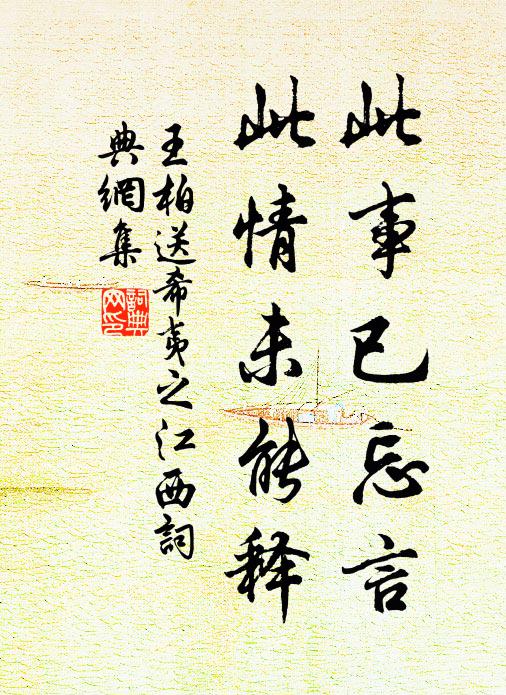 此事已忘言
此情未能释
王柏送希夷之江西詞
典網集
詞典网印